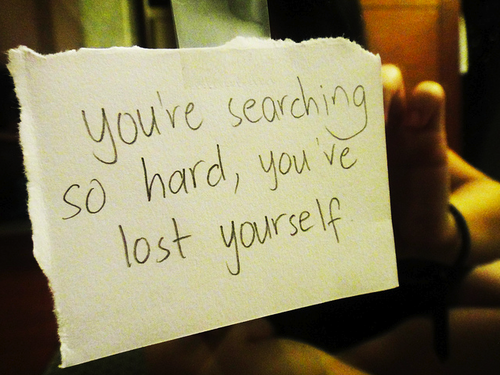 you're searching
so hard, you've
lost yourself.